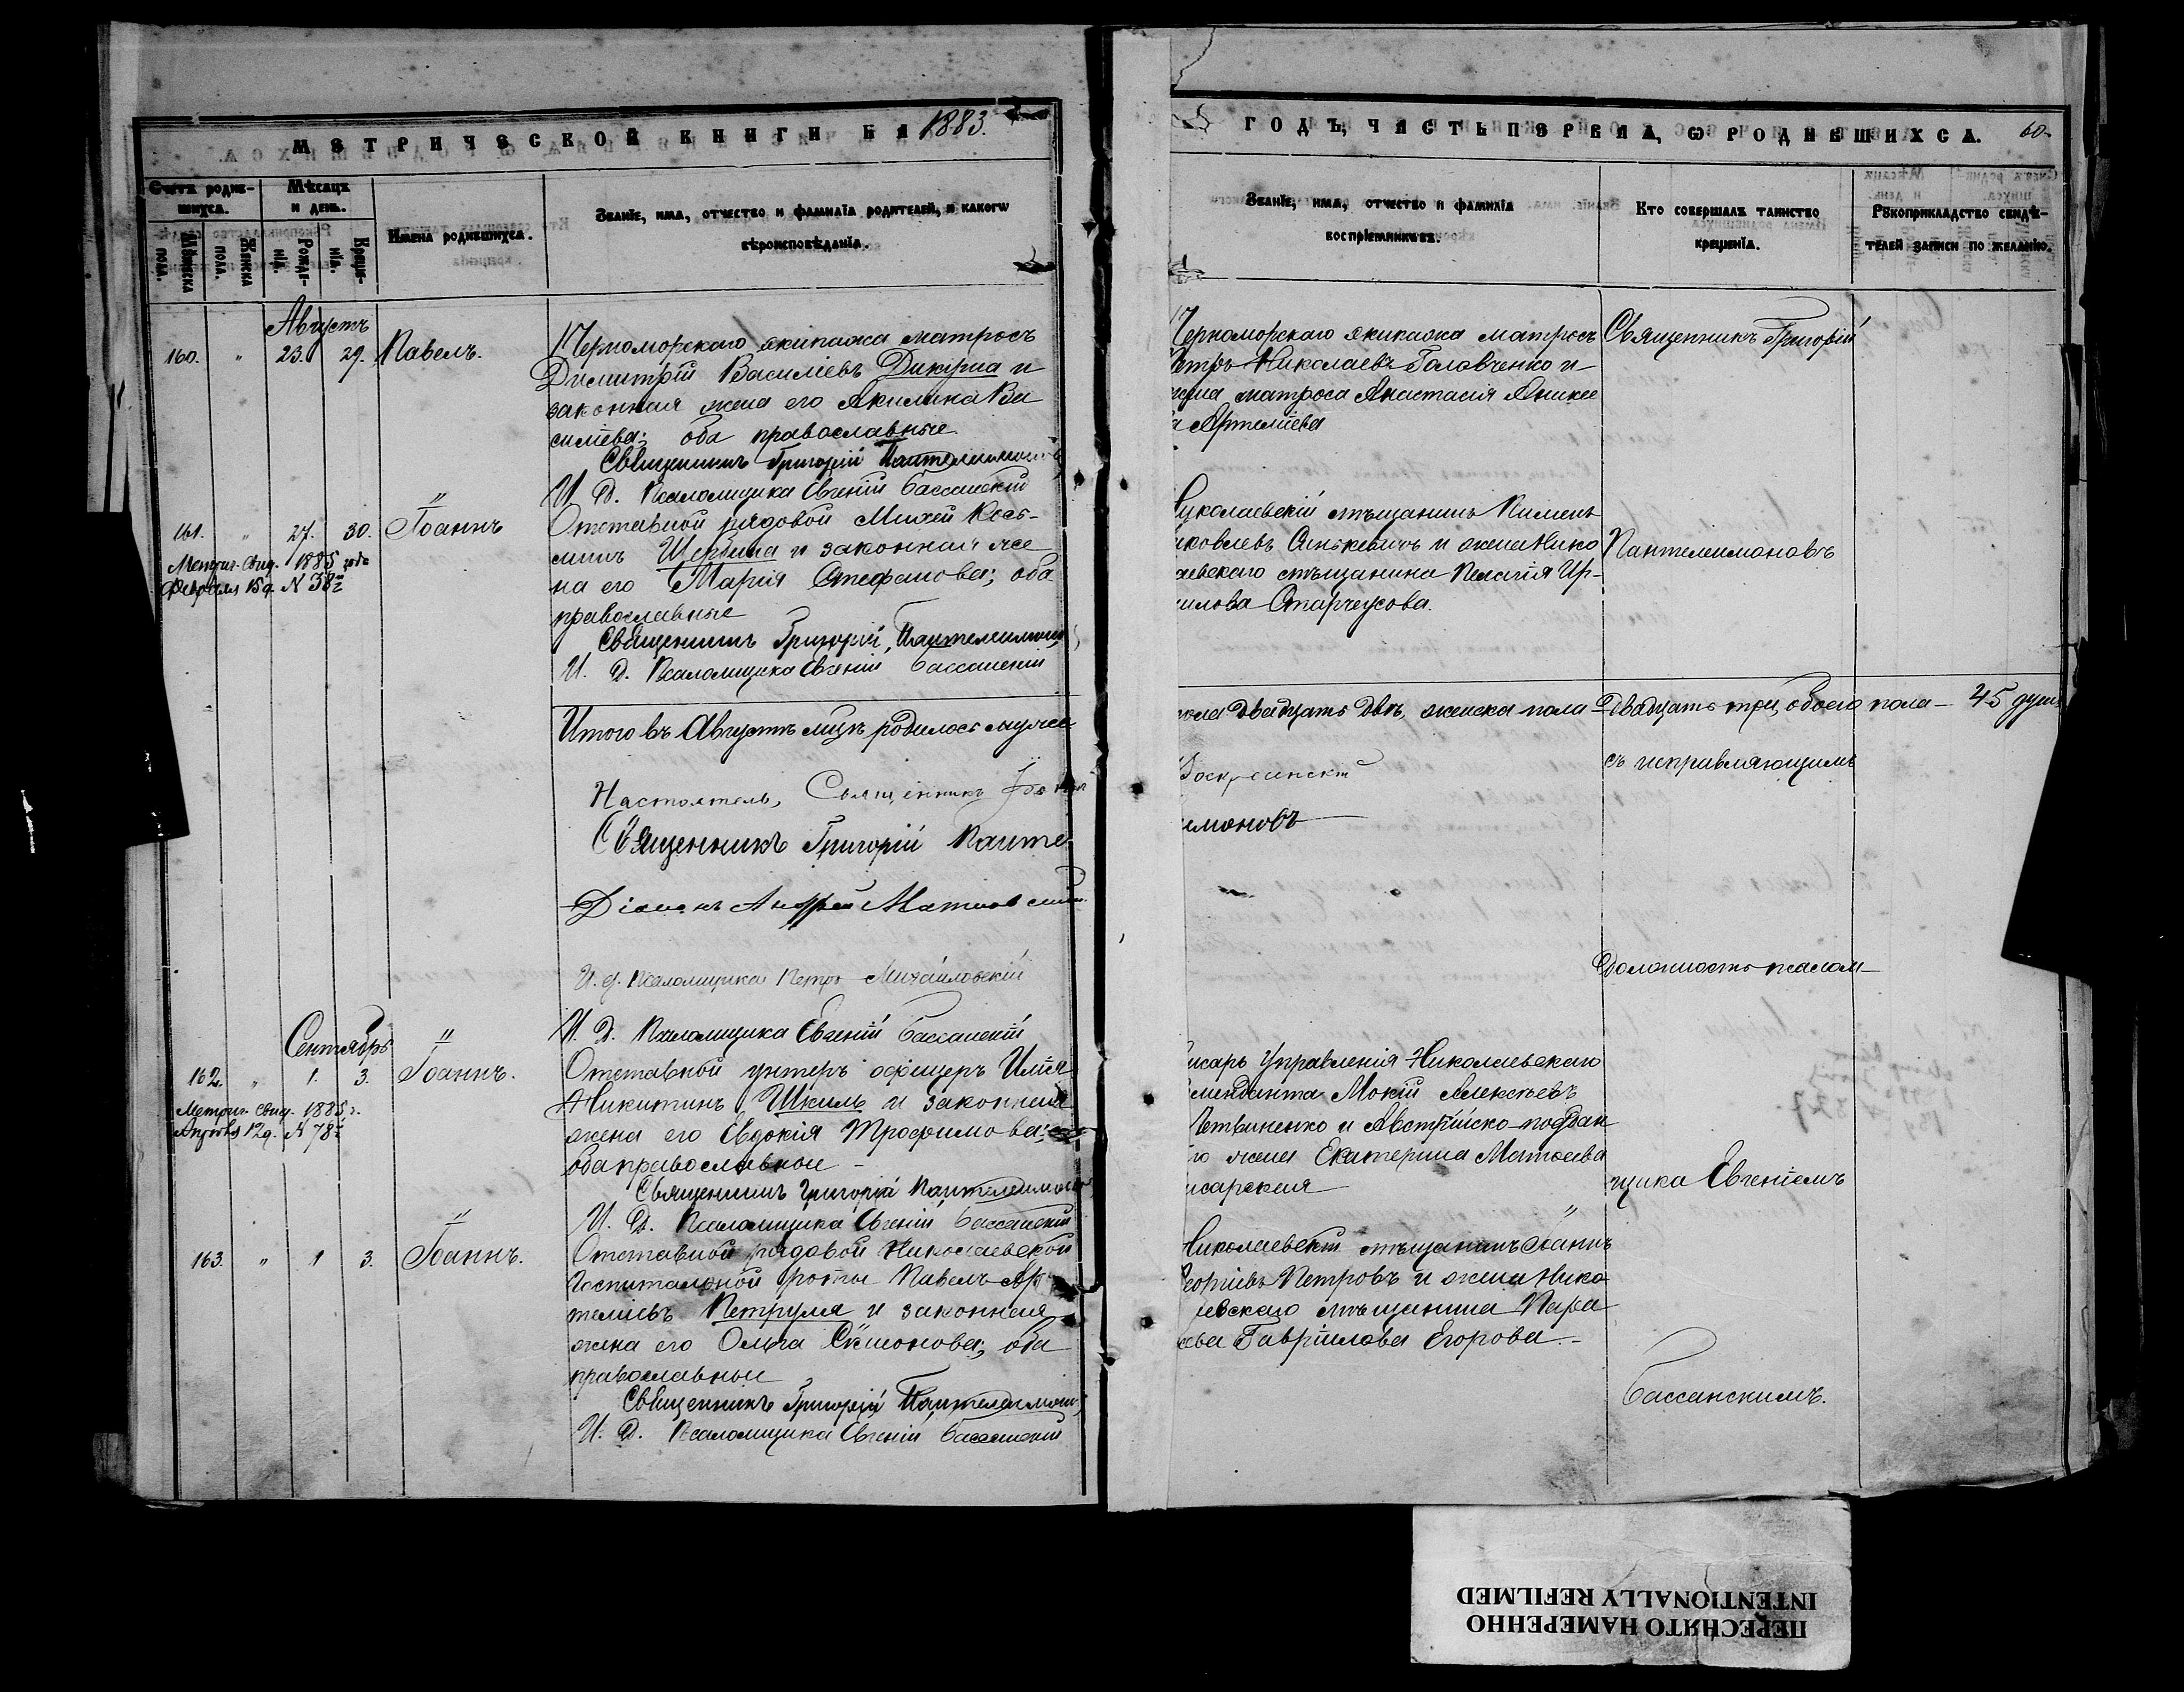 МЕТРИЧЕСКОЙ КНИГИ НА 1883.
Счетъ родив-
шихся.
Мѣсяцъ
и день.
Мужеска
пола.
Женска
пола.
Рожде-
нія.
Креще-
нія.
Имена родившихся.
Званіе, имя, отчество и фамилія родителей, и какого
вѣроисповѣданія.
Августъ
160. " 23. 29. Павелъ.
Черноморскаго экипажа матросъ
Димитрій Василіевъ и
законная жена его Акилина Ва
силіева; оба православные
Священникъ Григорій Пантелеимоновъ
И. Д. Псаломщика Евгеній Бассанскій
161. " 27. 30. Іоаннъ
Метрич. Свид. 1885 года
Февраля 15 д. N 38
Отставной рядовой Михей Кось-
минъ Щербина и законная же
на его Марія Стефанова; оба
православные
Священникъ Григорій Пантелеимоновъ
И. Д. Псаломщика Евгеній Бассанскій
Итого въ Августѣ мцѣ родилось мужес
Настоятель, Священникъ
Священникъ Григорій Панте
Діаконъ Андрей
И. д. Псаломщика Петръ Михайловскій
И. Д. Псаломщика Евгеній Бассанскій
Сентябрь
162. " 1. 3. Іоаннъ.
Метрич. Свид. 1885 г.
Апрѣля 12 д. N 78
Отставной унтеръ офицеръ Илія
Никитинъ Шкиль и законная
жена его Евдокія Трофимова;
оба православные
Священникъ Григорій Пантелеимоновъ
И. Д. Псаломщика Евгеній Бассанскій
163. " 1 3. Іоаннъ.
Отставной рядовой Николаевской
Госпитальной роты Павелъ Ар
теміевъ Петруля и законная
жена его Ольга Сѵмонова; оба
православные
Священникъ Григорій Пантелеимоновъ
И. Д. Псаломщика Евгеній Бассанскій
ГОДЪ, ЧАСТЬ ПЕРВАЯ, Ѡ РОДИВШИХСЯ. 60.
Званіе, имя, отчество и фамилія
воспріемниковъ.
Кто совершалъ таинство
крещенія.
Рукоприкладство свидѣ-
телей записи по желанію.
Черноморскаго экипажа матросъ
Петръ Николаевъ Головченко и
жена матроса Анастасія Аникее
Священникъ Григорій
Николаевскій мѣщанинъ Пименъ
аковлевъ Синькевичъ и жена Нико
аевскаго мѣщанина Пелагія Ир-
Пантелеимоновъ
пола двадцать два, женска пола - двадцать три, обоего пола - 45 душъ
Воскресинскій
съ исправляющимъ
имоновъ
должность псалом-
исарь Управленія Николаевскаго
менданта Мокій Алексѣевъ
Литвиненко и Австрійско-поддан
го жена Екатерина Матѳеева
щика Евгеніемъ
Николаевскій мѣщанинъ Іоаннъ
Георгіевъ Петровъ и жена Нико
аевскаго мѣщанина Пара
кева Гавріилова Егорова.
Бассанскимъ.
ПЕРЕСНЯТО НАМЕРЕННО
INTENTIONALLY REFILMED